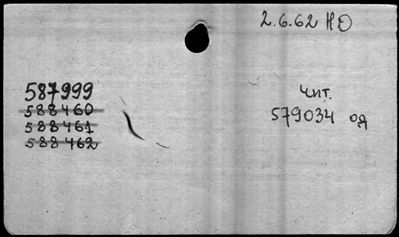 2.6.62 НО
587999
588460
588461
588462
Чит.
579034 од